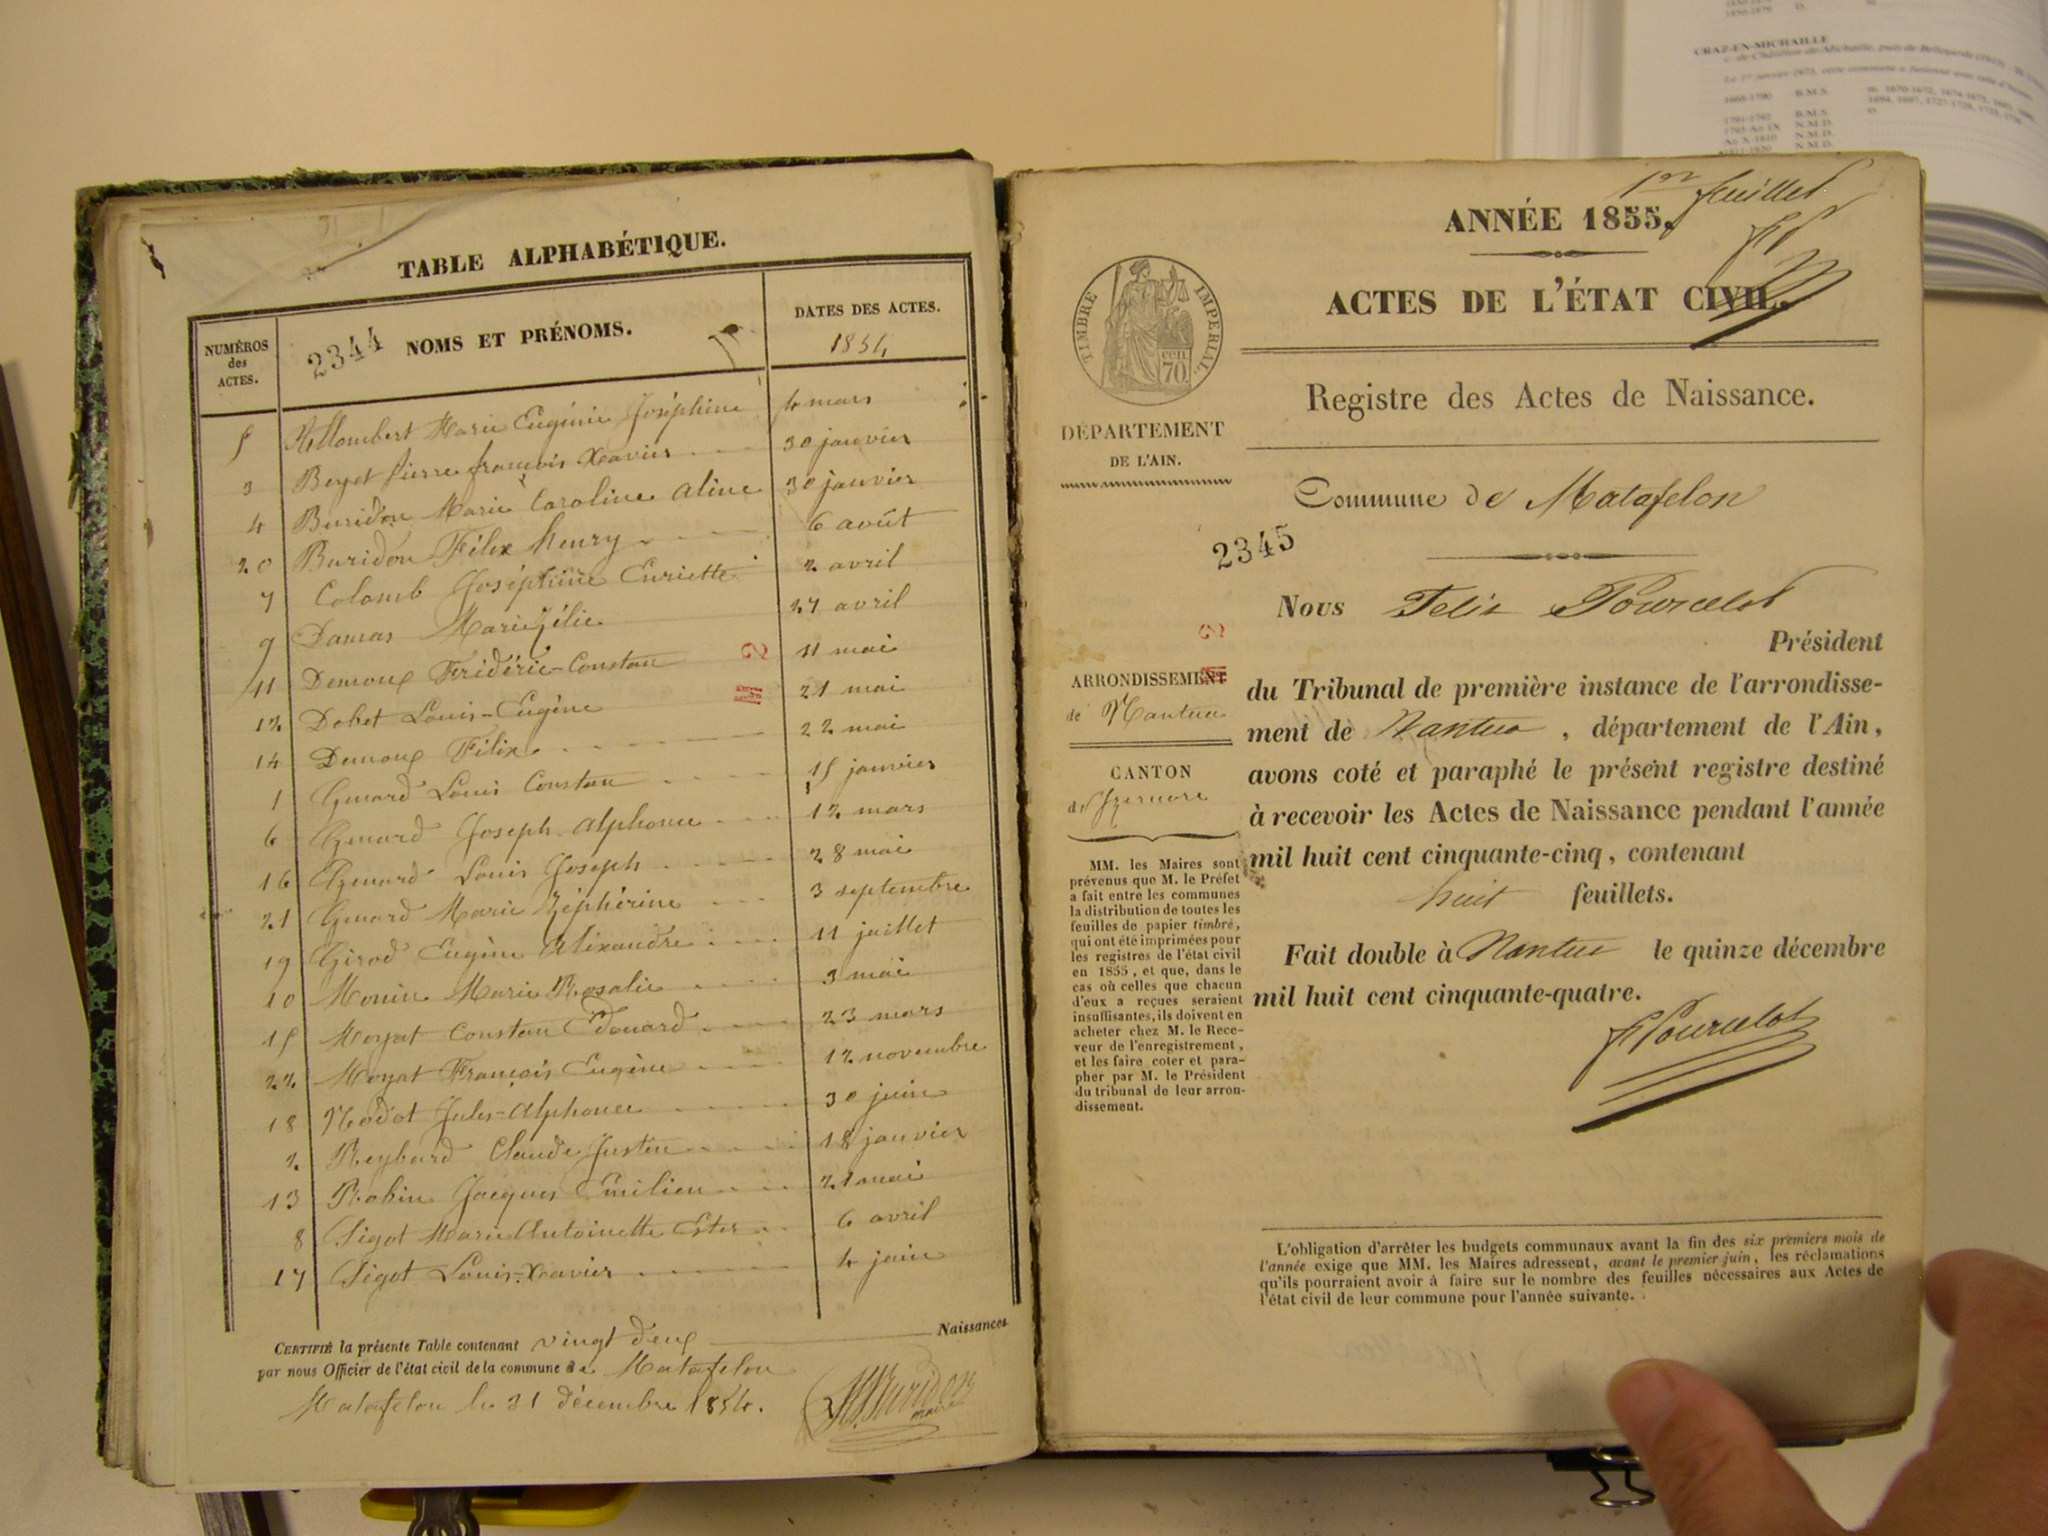 TABLE ALPHABÉTIQUE.
NUMÉROS des ACTES.
2344 NOMS ET PRÉNOMS.
DATES DES ACTES.
1854
5 Allombert Marie Eugénie Joséphine 4 mars
3 Beyet Pierre françois Xavier 30 janvier
4 Buridon Marie Caroline Aline 30 janvier
20 Buridon Félix henry 6 août
7 Colomb Joséphine Enriette 2 avril
9 Damas Marie Zélie 27 avril
11 Demoux Frédéric-Constan 11 mai
12 Dobet Louis-Eugène 21 mai
14 Demoux Félix 22 mai
1 Genard Louis Constan 15 janvier
6 Genard Joseph alphonse 12 mars
16 Genard Louis Joseph 28 mai
21 Genard Marie Zéphérine 3 septembre
19 Girod Eugène Alixandre 11 juillet
10 Monin Marie Rosalie 3 mai
15 Moyat Constan Edouard 23 mars
22 Moyat François Eugène 12 novembre
18 Nodot Jules-alphonse 30 juin
2 Reybard Claude Justin 18 janvier
13 Robin Jacques Emilien 21 mai
8 Sigot Marie Antoinette Ester 6 avril
17 Sigot Louis-Xavier 4 juin
CERTIFIÉ la présente Table contenant vingt deux Naissances
par nous Officier de l'état civil de la commune de Matafelon
Matafelon le 31 décembre 1854.
Buridon
maire
1er feuillet
ANNÉE 1855.
ACTES DE L'ÉTAT CIVIL.
TIMBRE IMPERIAL
cen.
70.
Registre des Actes de Naissance.
DÉPARTEMENT
DE L'AIN.
Commune de Matafelon
2345
Nous Felix Pourcelot
Président
du Tribunal de première instance de l'arrondisse-
ment de Nantua, département de l'Ain,
avons coté et paraphé le présent registre destiné
à recevoir les Actes de Naissance pendant l'année
mil huit cent cinquante-cinq, contenant
huit feuillets.
Fait double à Nantua le quinze décembre
mil huit cent cinquante-quatre.
F Pourcelot
ARRONDISSEMENT
de Nantua
CANTON
d'Izernore
MM. les Maires sont
prévenus que M. le Préfet
a fait entre les communes
la distribution de toutes les
feuilles de papier timbré,
qui ont été imprimées pour
les registres de l'état civil
en 1855, et que, dans le
cas où celles que chacun
d'eux a reçues seraient
insuffisantes, ils doivent en
acheter chez M. le Rece-
veur de l'enregistrement,
et les faire coter et para-
pher par M. le Président
du tribunal de leur arron-
dissement.
L'obligation d'arrêter les budgets communaux avant la fin des six premiers mois de
l'année exige que MM. les Maires adressent, avant le premier juin, les réclamations
qu'ils pourraient avoir à faire sur le nombre des feuilles nécessaires aux Actes de
l'état civil de leur commune pour l'année suivante.
CRAZ-EN-MICHAILLE